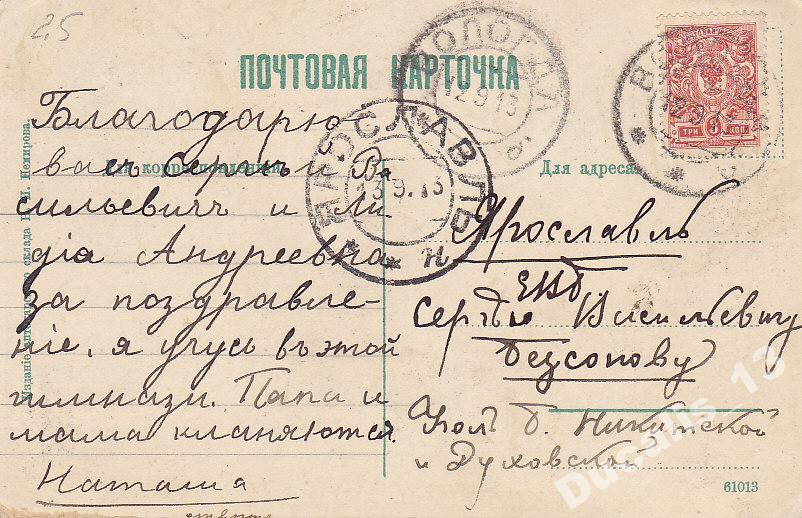 2,5
ПОЧТОВАЯ КАРТОЧКА
ВОЛОГДА
12.9.13
ЯРОСЛАВЛЬ
13.9.13
Н
12.9.13
ТРИ 3 КОП
Для корреспонденціи
Для адреса
Благодарю
васъ Сергѣй Ва
сильевичъ и Ли
дія Андреевна
за поздравле-
ніе, я учусь въ этой
гимназіи. Папа и
мама кланяются.
Наташа
Ярославль
ЕВБ
Сергѣю Васильевичу
Безсонову
Уголъ Б. Никитской
и Духовской
Изданіе
склада
Немирова.
61013
Ducalis_13